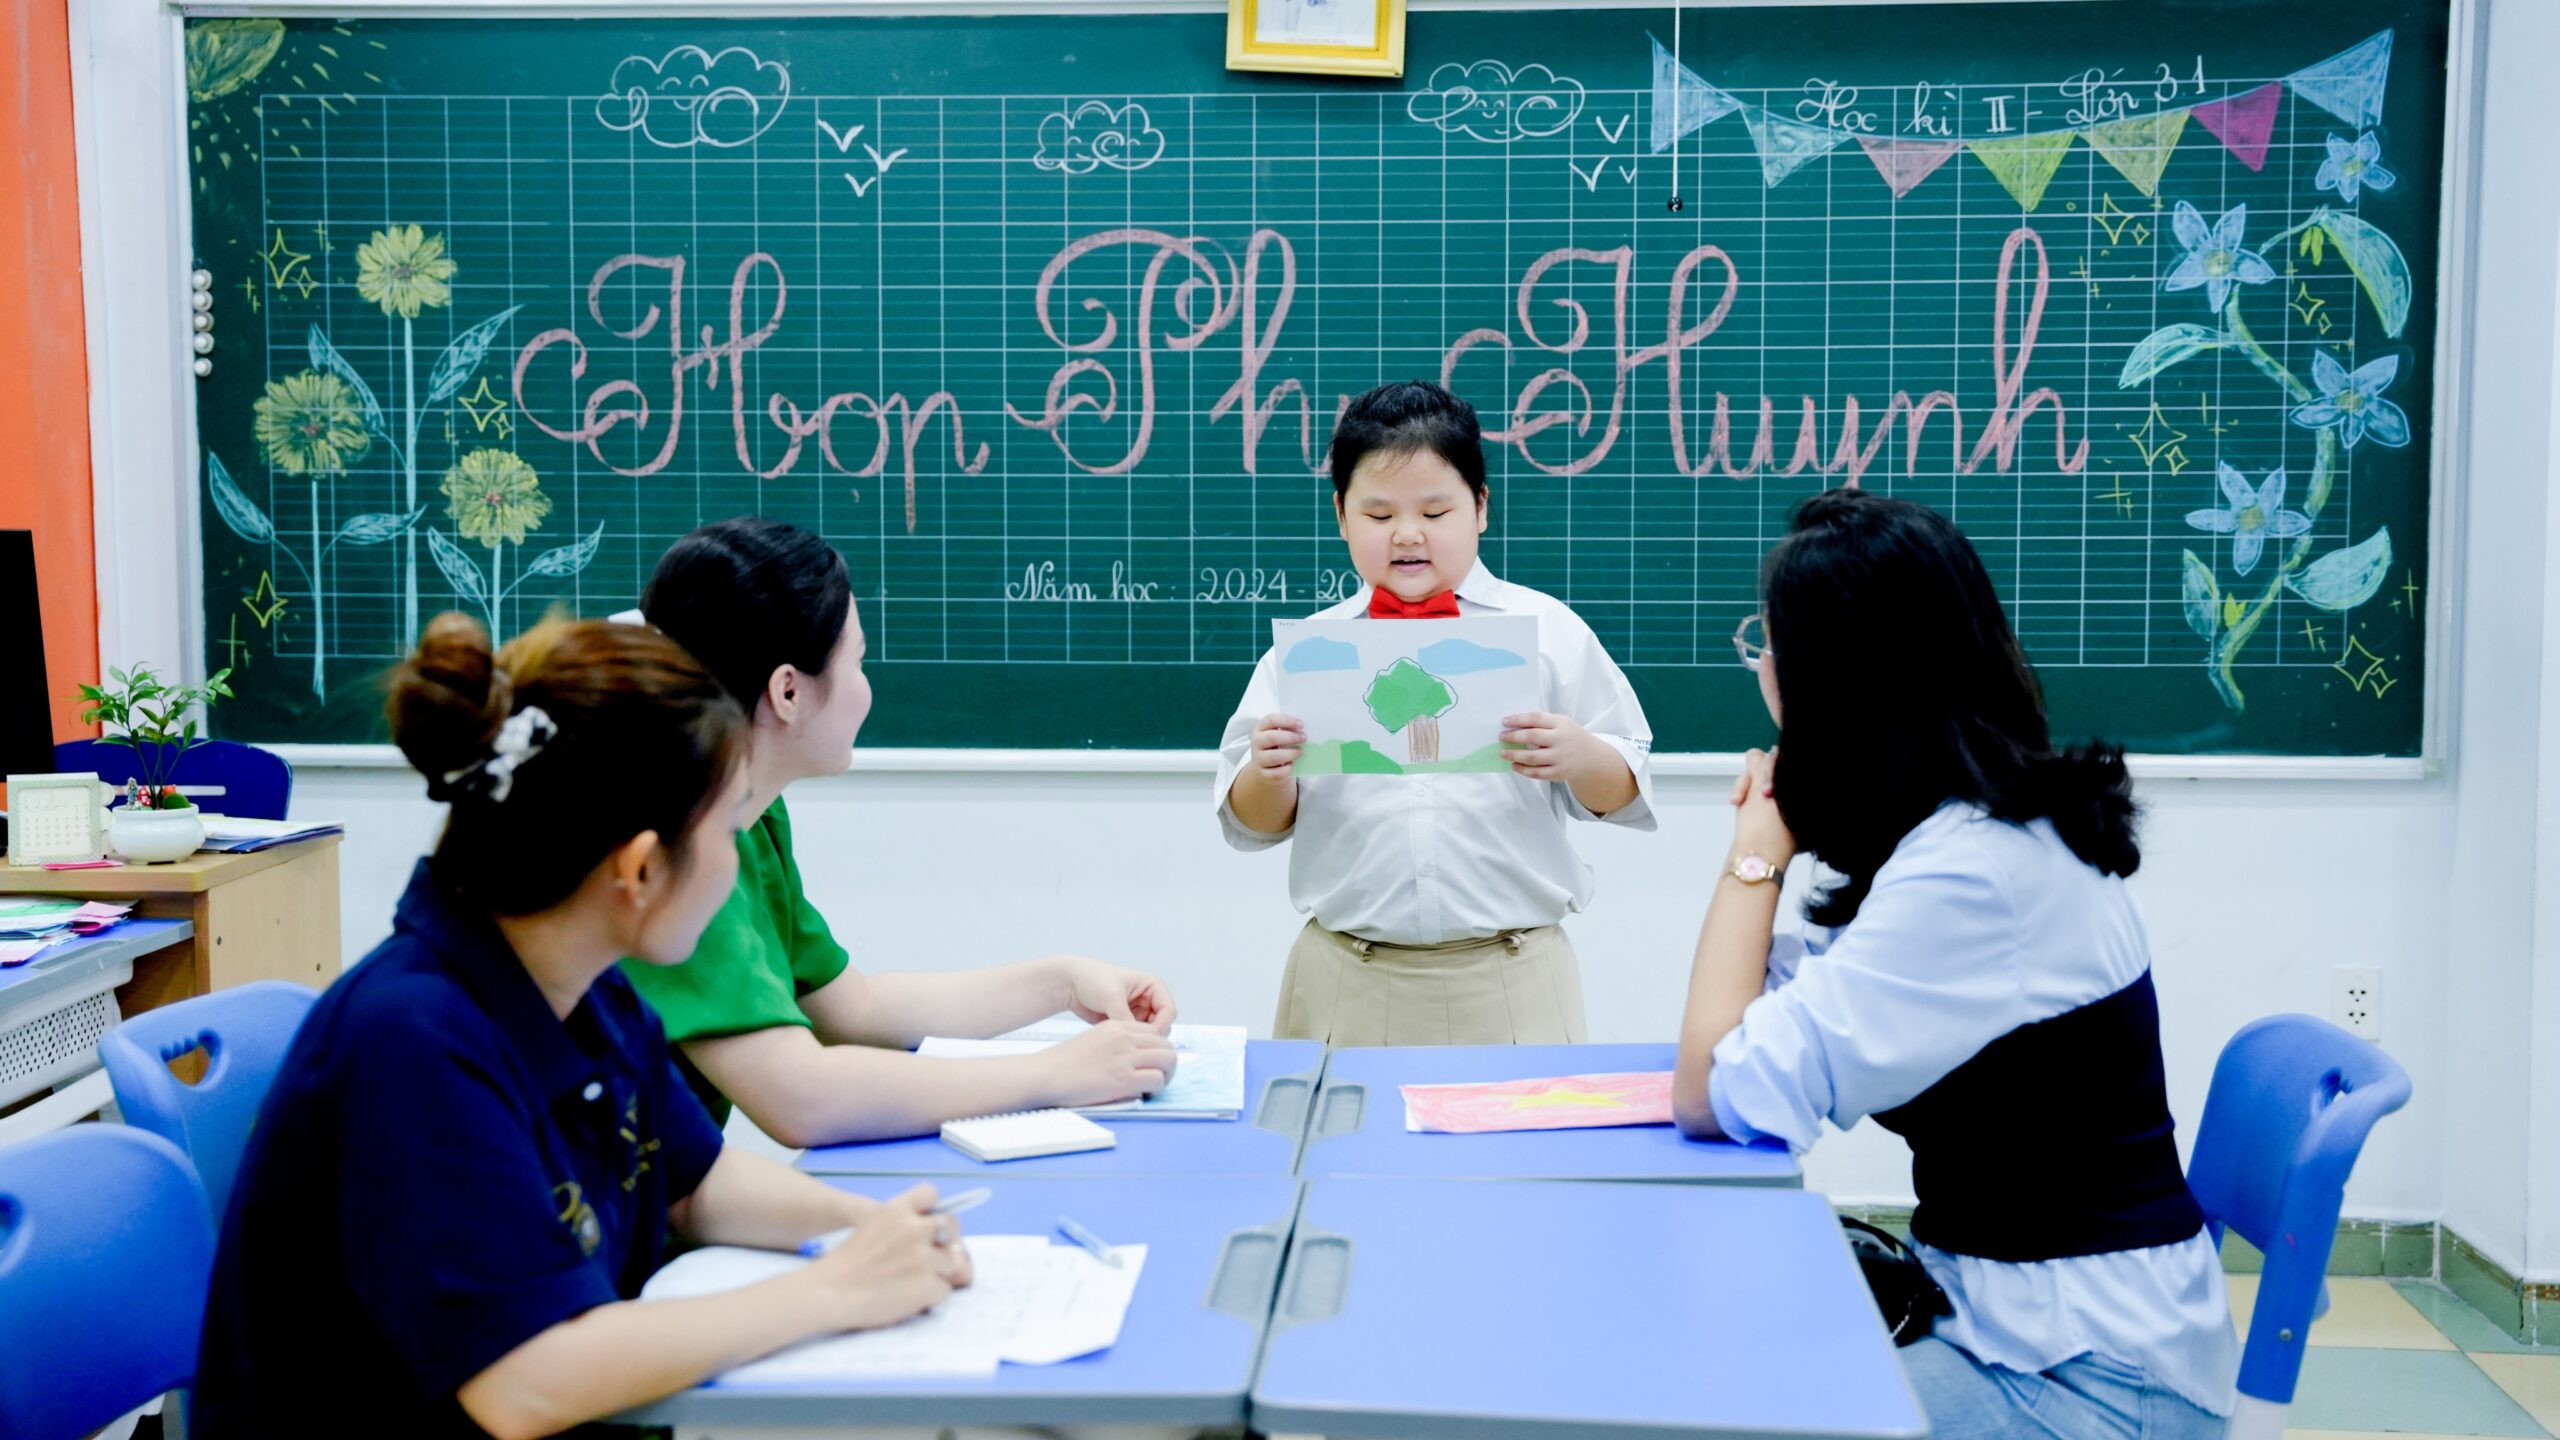 Học kì II - Lớp 3.1
Họp Phụ Huynh
Năm học : 2024 - 20